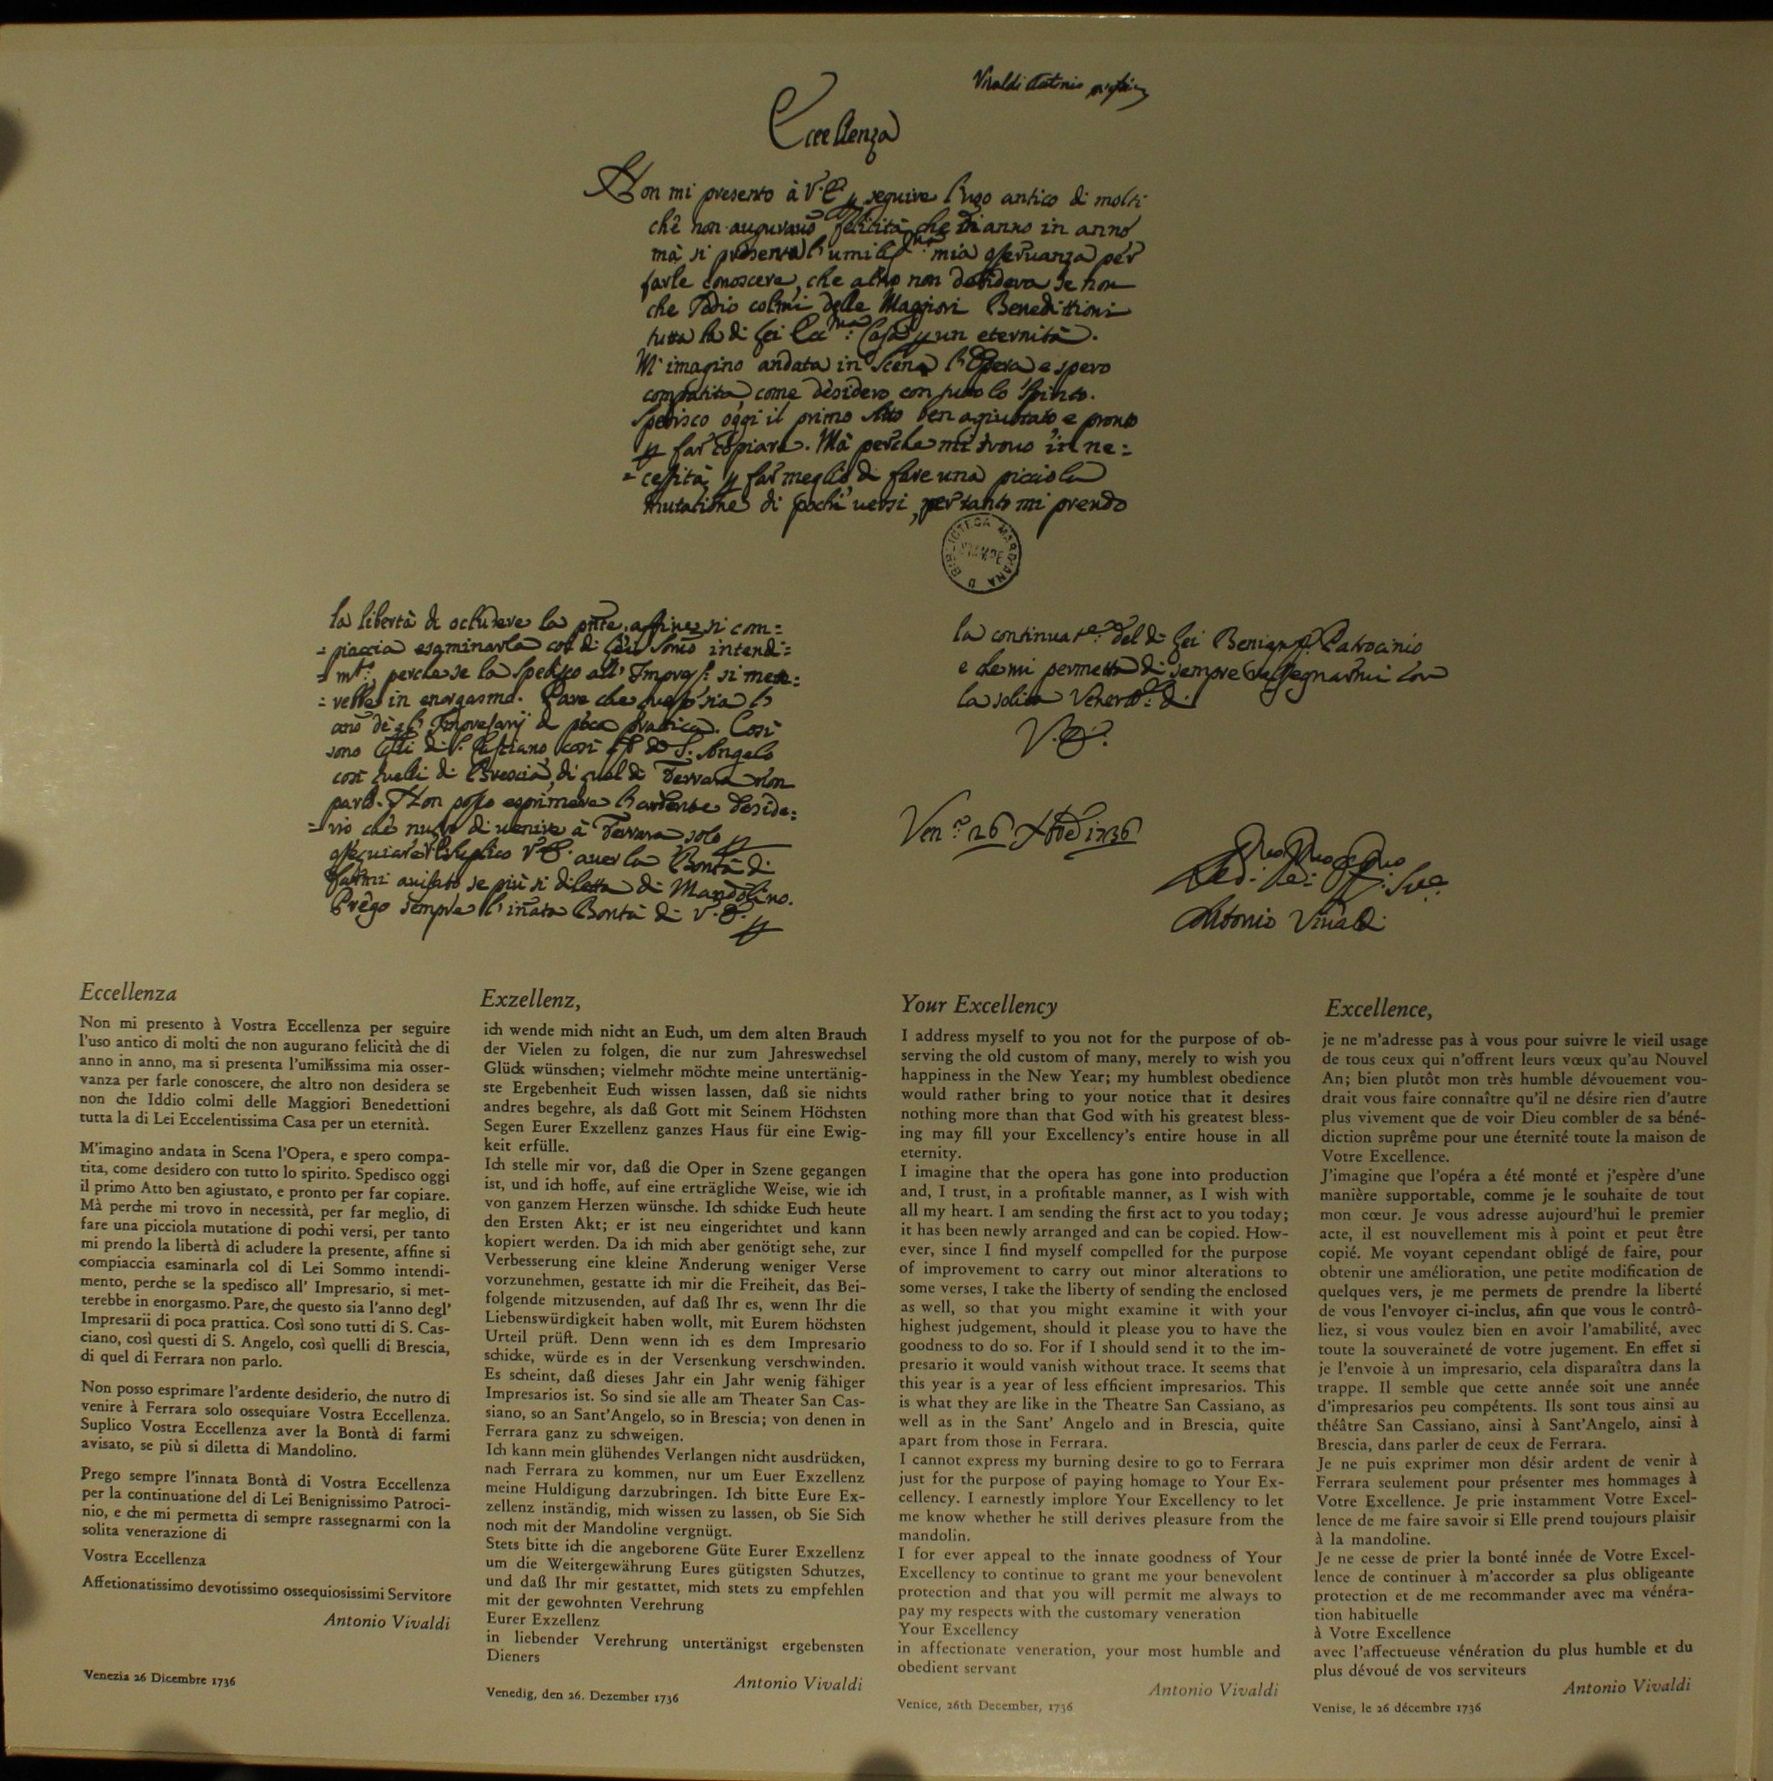 Vivaldi Antonio
Eccellenza
Non mi presento à V. E. seguire l'uso antico di molti
chè non augurano felicità che di anno in anno
mà si presenta l'umil mia osservanza per
farle conoscere, che altro non desidera se non
che Iddio colmi delle Maggiori Benedittioni
tutta la di Lei Ecc.ma Casa un eternità.
M'imagino andata in Scena l'Opera e spero
compatita, come desidero con tutto lo Spirito.
Spedisco oggi il primo Atto ben agiustato e pronto
far copiare. Mà perche mi trovo in ne=
=cessità, far meglio, di fare una picciola
mutatione di pochi versi, per tanto mi prendo
BIBLIOTECA MARCIANA
la libertà di acludere la pnte, affine si com=
=piaccia esaminarla col di Lei Somo intendi=
=mto, perche se la Spedisco all' Impres. si mette=
in enorgasmo. Pare che questo sia l'
Impresarij di poca prattica. Così
sono tutti di S. Casciano, così di S. Angelo
così quelli di Brescia, di quel di Ferrara non
parlo. Non posso esprimere l'ardente deside=
=rio che nutro di venire à Ferrara solo
Suplico V. E. aver la Bontà di
farmi avisato se più si diletta di Mandolino.
Prego sempre l'inata Bontà di V. E.
la continuat.e del di Lei Benigniss. Patrocinio
e che mi permetta di sempre rassegnarmi con
la solita Veneraz. di
V. E.
Ven.a 26 Xbre 1736
Antonio Vivaldi
Eccellenza
Non mi presento à Vostra Eccellenza per seguire
l'uso antico di molti che non augurano felicità che di
anno in anno, ma si presenta l'umilissima mia osser-
vanza per farle conoscere, che altro non desidera se
non che Iddio colmi delle Maggiori Benedettioni
tutta la di Lei Eccelentissima Casa per un eternità.
M'imagino andata in Scena l'Opera, e spero compa-
tita, come desidero con tutto lo spirito. Spedisco oggi
il primo Atto ben agiustato, e pronto per far copiare.
Mà perche mi trovo in necessità, per far meglio, di
fare una picciola mutatione di pochi versi, per tanto
mi prendo la libertà di acludere la presente, affine si
compiaccia esaminarla col di Lei Sommo intendi-
mento, perche se la spedisco all' Impresario, si met-
terebbe in enorgasmo. Pare, che questo sia l'anno degl'
Impresarii di poca prattica. Così sono tutti di S. Cas-
ciano, così questi di S. Angelo, così quelli di Brescia,
di quel di Ferrara non parlo.
Non posso esprimare l'ardente desiderio, che nutro di
venire à Ferrara solo ossequiare Vostra Eccellenza.
Suplico Vostra Eccellenza aver la Bontà di farmi
avisato, se più si diletta di Mandolino.
Prego sempre l'innata Bontà di Vostra Eccellenza
per la continuatione del di Lei Benignissimo Patroci-
nio, e che mi permetta di sempre rassegnarmi con la
solita venerazione di
Vostra Eccellenza
Affetionatissimo devotissimo ossequiosissimi Servitore
Antonio Vivaldi
Venezia 26 Dicembre 1736
Exzellenz,
ich wende mich nicht an Euch, um dem alten Brauch
der Vielen zu folgen, die nur zum Jahreswechsel
Glück wünschen; vielmehr möchte meine untertänig-
ste Ergebenheit Euch wissen lassen, daß sie nichts
andres begehre, als daß Gott mit Seinem Höchsten
Segen Eurer Exzellenz ganzes Haus für eine Ewig-
keit erfülle.
Ich stelle mir vor, daß die Oper in Szene gegangen
ist, und ich hoffe, auf eine erträgliche Weise, wie ich
von ganzem Herzen wünsche. Ich schicke Euch heute
den Ersten Akt; er ist neu eingerichtet und kann
kopiert werden. Da ich mich aber genötigt sehe, zur
Verbesserung eine kleine Änderung weniger Verse
vorzunehmen, gestatte ich mir die Freiheit, das Bei-
folgende mitzusenden, auf daß Ihr es, wenn Ihr die
Liebenswürdigkeit haben wollt, mit Eurem höchsten
Urteil prüft. Denn wenn ich es dem Impresario
schicke, würde es in der Versenkung verschwinden.
Es scheint, daß dieses Jahr ein Jahr wenig fähiger
Impresarios ist. So sind sie alle am Theater San Cas-
siano, so an Sant'Angelo, so in Brescia; von denen in
Ferrara ganz zu schweigen.
Ich kann mein glühendes Verlangen nicht ausdrücken,
nach Ferrara zu kommen, nur um Euer Exzellenz
meine Huldigung darzubringen. Ich bitte Eure Ex-
zellenz inständig, mich wissen zu lassen, ob Sie Sich
noch mit der Mandoline vergnügt.
Stets bitte ich die angeborene Güte Eurer Exzellenz
um die Weitergewährung Eures gütigsten Schutzes,
und daß Ihr mir gestattet, mich stets zu empfehlen
mit der gewohnten Verehrung
Eurer Exzellenz
in liebender Verehrung untertänigst ergebensten
Dieners
Antonio Vivaldi
Venedig, den 26. Dezember 1736
Your Excellency
I address myself to you not for the purpose of ob-
serving the old custom of many, merely to wish you
happiness in the New Year; my humblest obedience
would rather bring to your notice that it desires
nothing more than that God with his greatest bless-
ing may fill your Excellency's entire house in all
eternity.
I imagine that the opera has gone into production
and, I trust, in a profitable manner, as I wish with
all my heart. I am sending the first act to you today;
it has been newly arranged and can be copied. How-
ever, since I find myself compelled for the purpose
of improvement to carry out minor alterations to
some verses, I take the liberty of sending the enclosed
as well, so that you might examine it with your
highest judgement, should it please you to have the
goodness to do so. For if I should send it to the im-
presario it would vanish without trace. It seems that
this year is a year of less efficient impresarios. This
is what they are like in the Theatre San Cassiano, as
well as in the Sant' Angelo and in Brescia, quite
apart from those in Ferrara.
I cannot express my burning desire to go to Ferrara
just for the purpose of paying homage to Your Ex-
cellency. I earnestly implore Your Excellency to let
me know whether he still derives pleasure from the
mandolin.
I for ever appeal to the innate goodness of Your
Excellency to continue to grant me your benevolent
protection and that you will permit me always to
pay my respects with the customary veneration
Your Excellency
in affectionate veneration, your most humble and
obedient servant
Antonio Vivaldi
Venice, 26th December, 1736
Excellence,
je ne m'adresse pas à vous pour suivre le vieil usage
de tous ceux qui n'offrent leurs vœux qu'au Nouvel
An; bien plutôt mon très humble dévouement vou-
drait vous faire connaître qu'il ne désire rien d'autre
plus vivement que de voir Dieu combler de sa béné-
diction suprême pour une éternité toute la maison de
Votre Excellence.
J'imagine que l'opéra a été monté et j'espère d'une
manière supportable, comme je le souhaite de tout
mon cœur. Je vous adresse aujourd'hui le premier
acte, il est nouvellement mis à point et peut être
copié. Me voyant cependant obligé de faire, pour
obtenir une amélioration, une petite modification de
quelques vers, je me permets de prendre la liberté
de vous l'envoyer ci-inclus, afin que vous le contrô-
liez, si vous voulez bien en avoir l'amabilité, avec
toute la souveraineté de votre jugement. En effet si
je l'envoie à un impresario, cela disparaîtra dans la
trappe. Il semble que cette année soit une année
d'impresarios peu compétents. Ils sont tous ainsi au
théâtre San Cassiano, ainsi à Sant'Angelo, ainsi à
Brescia, dans parler de ceux de Ferrara.
Je ne puis exprimer mon désir ardent de venir à
Ferrara seulement pour présenter mes hommages à
Votre Excellence. Je prie instamment Votre Excel-
lence de me faire savoir si Elle prend toujours plaisir
à la mandoline.
Je ne cesse de prier la bonté innée de Votre Excel-
lence de continuer à m'accorder sa plus obligeante
protection et de me recommander avec ma vénéra-
tion habituelle
à Votre Excellence
avec l'affectueuse vénération du plus humble et du
plus dévoué de vos serviteurs
Antonio Vivaldi
Venise, le 26 décembre 1736